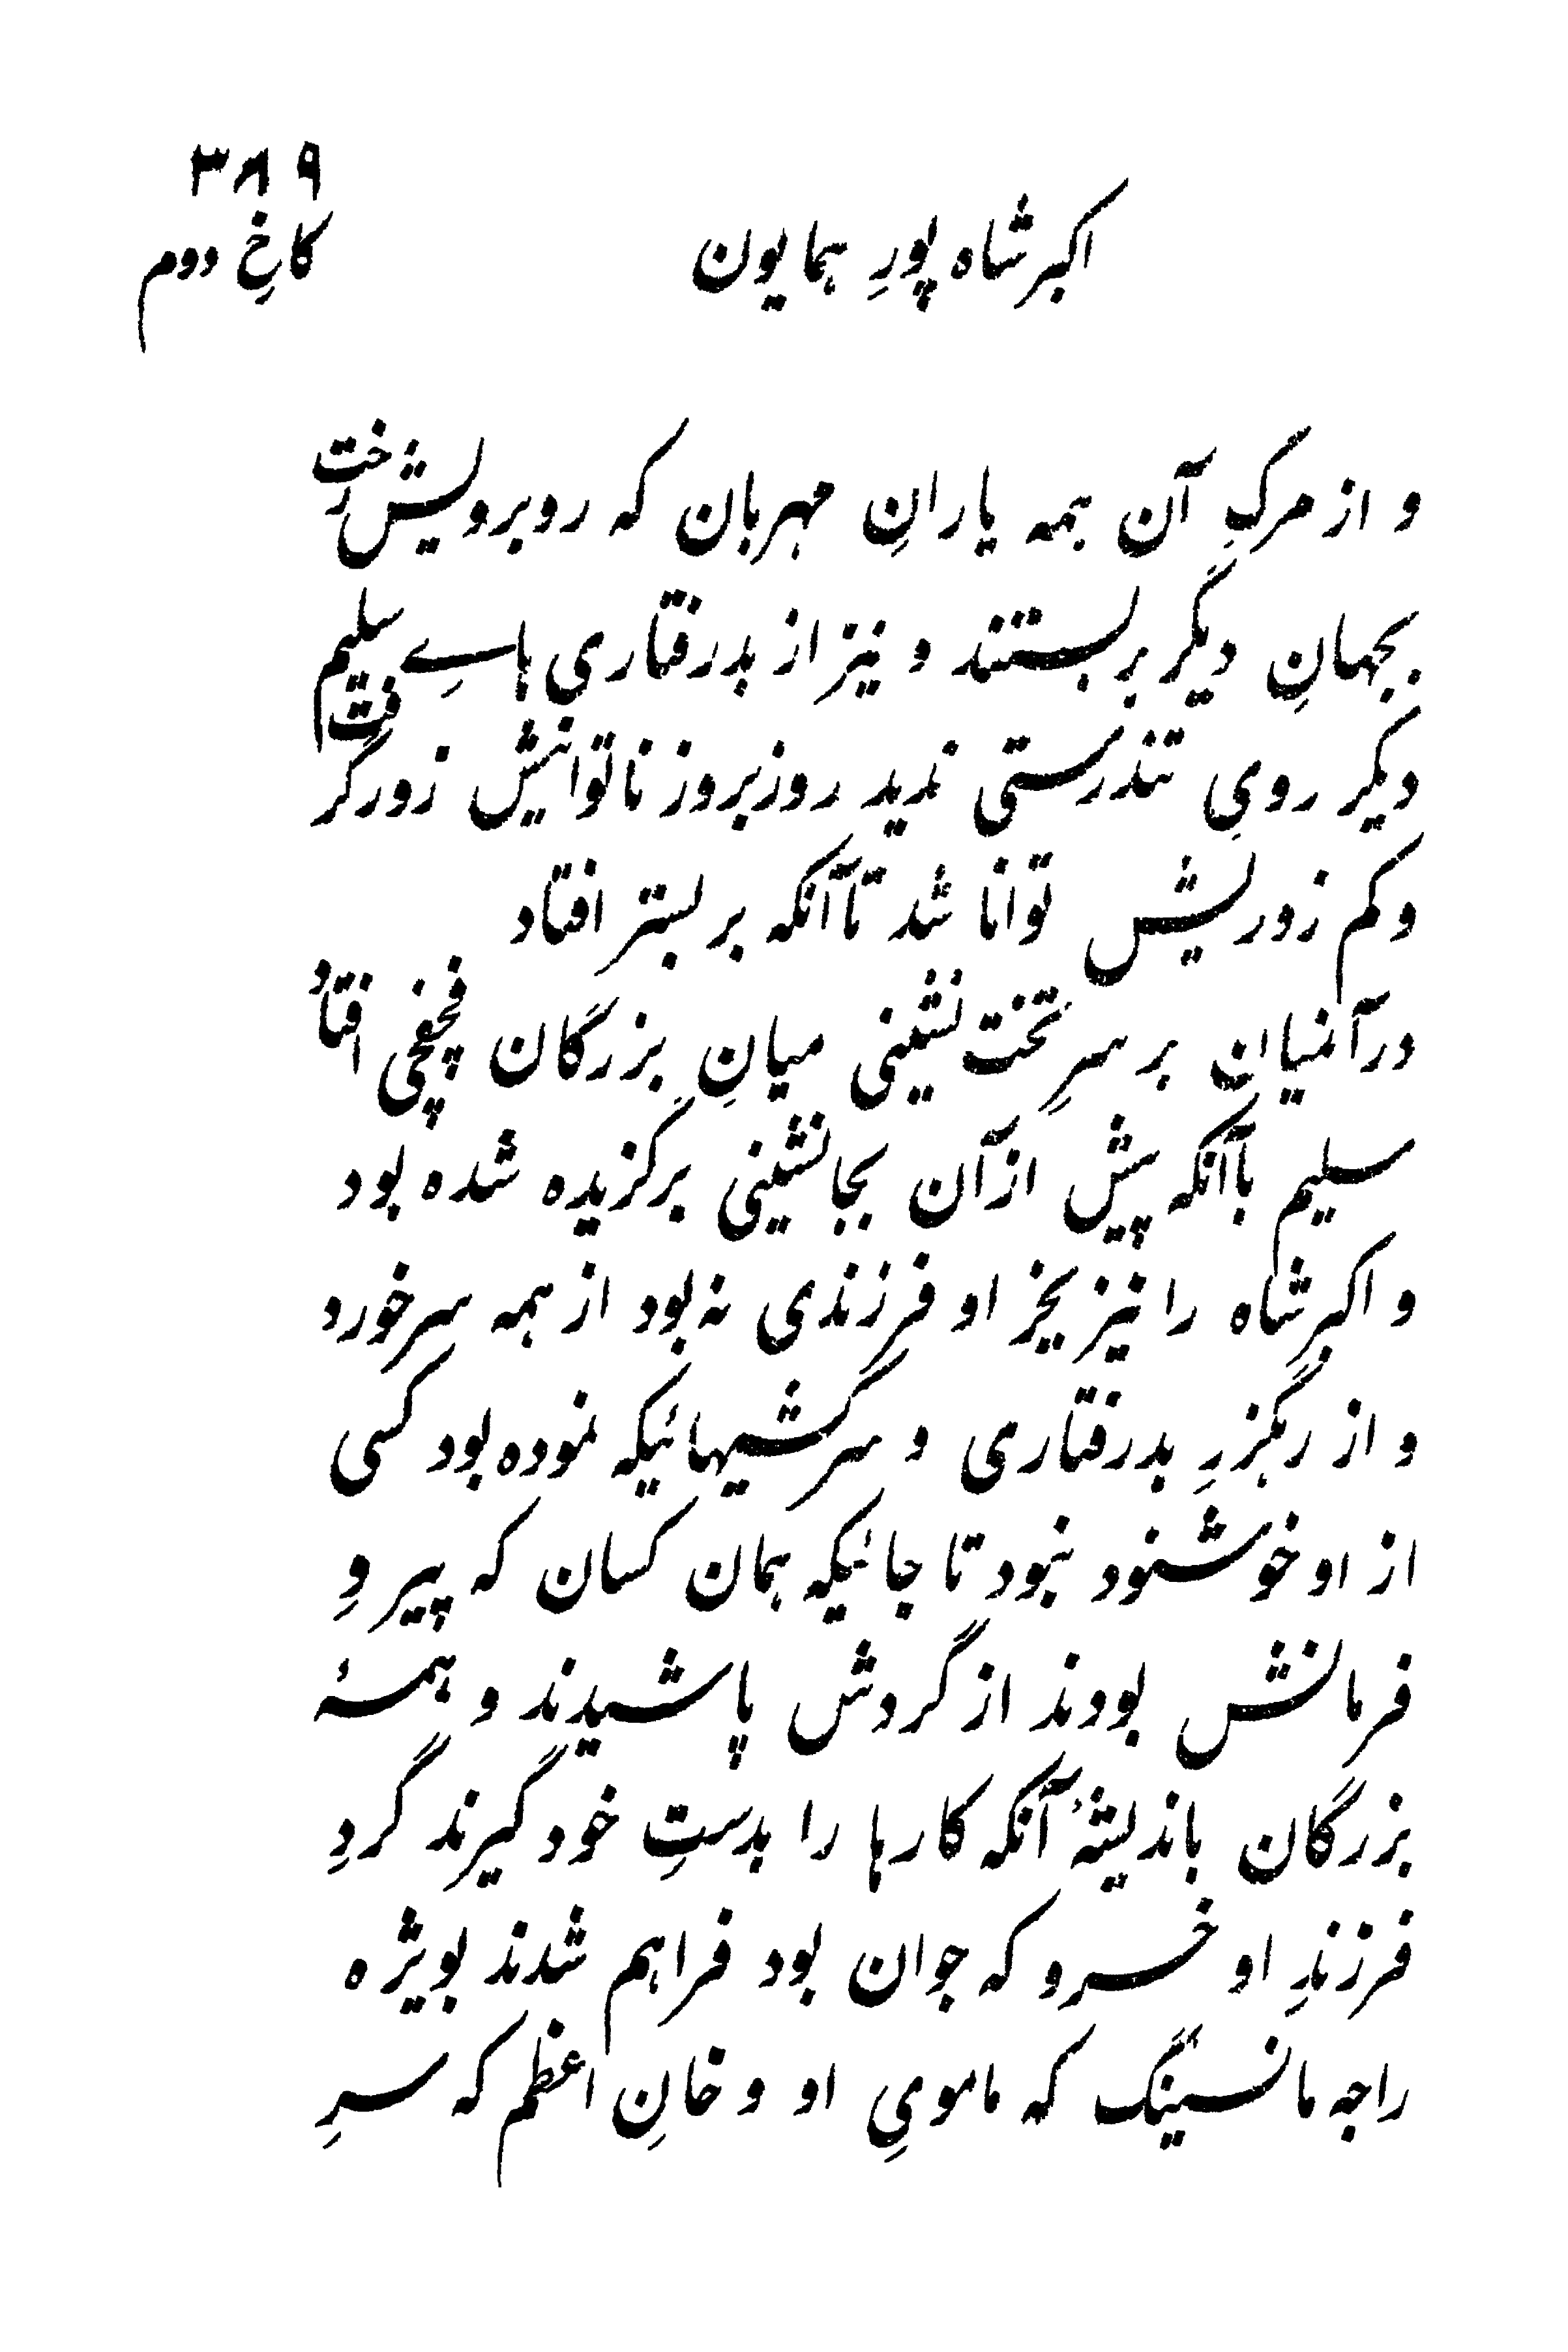 ۳۸۹
کاخِ دوم
اکبر شاه پورِ همایون
و از مرگِ آن همه یارانِ مهربان که روبرویش رخت
بجهانِ دیگر بر بستند و نیز از بدرفتاری هاےِ سلیم
دیگر رویِ تندرستی ندید روز بروز ناتوانیش زور گرفت
و کم زوریش توانا شد تا آنکه بر بستر افتاد
در آنمیان بر سرِ تخت نشینی میانِ بزرگان افتاد
سلیم با آنکه پیش از آن بجانشینی برگزیده شده بود
و اکبر شاه را نیز بجز او فرزندی نه بود از همه سر خورد
و از رهگزرِ بدرفتاری و سرکشیهائیکه نموده بود کسی
از او خوشنود نبود تا جائیکه همان کسان که پیروِ
فرمانش بودند از گردش پاشیدند و همهٔ
بزرگان باندیشهٔ آنکه کارها را بدستِ خود گیرند گردِ
فرزندِ او خسرو که جوان بود فراهم شدند بویژه
راجه مانسینگ که ماموىِ او و خانِ اعظم که سرِ